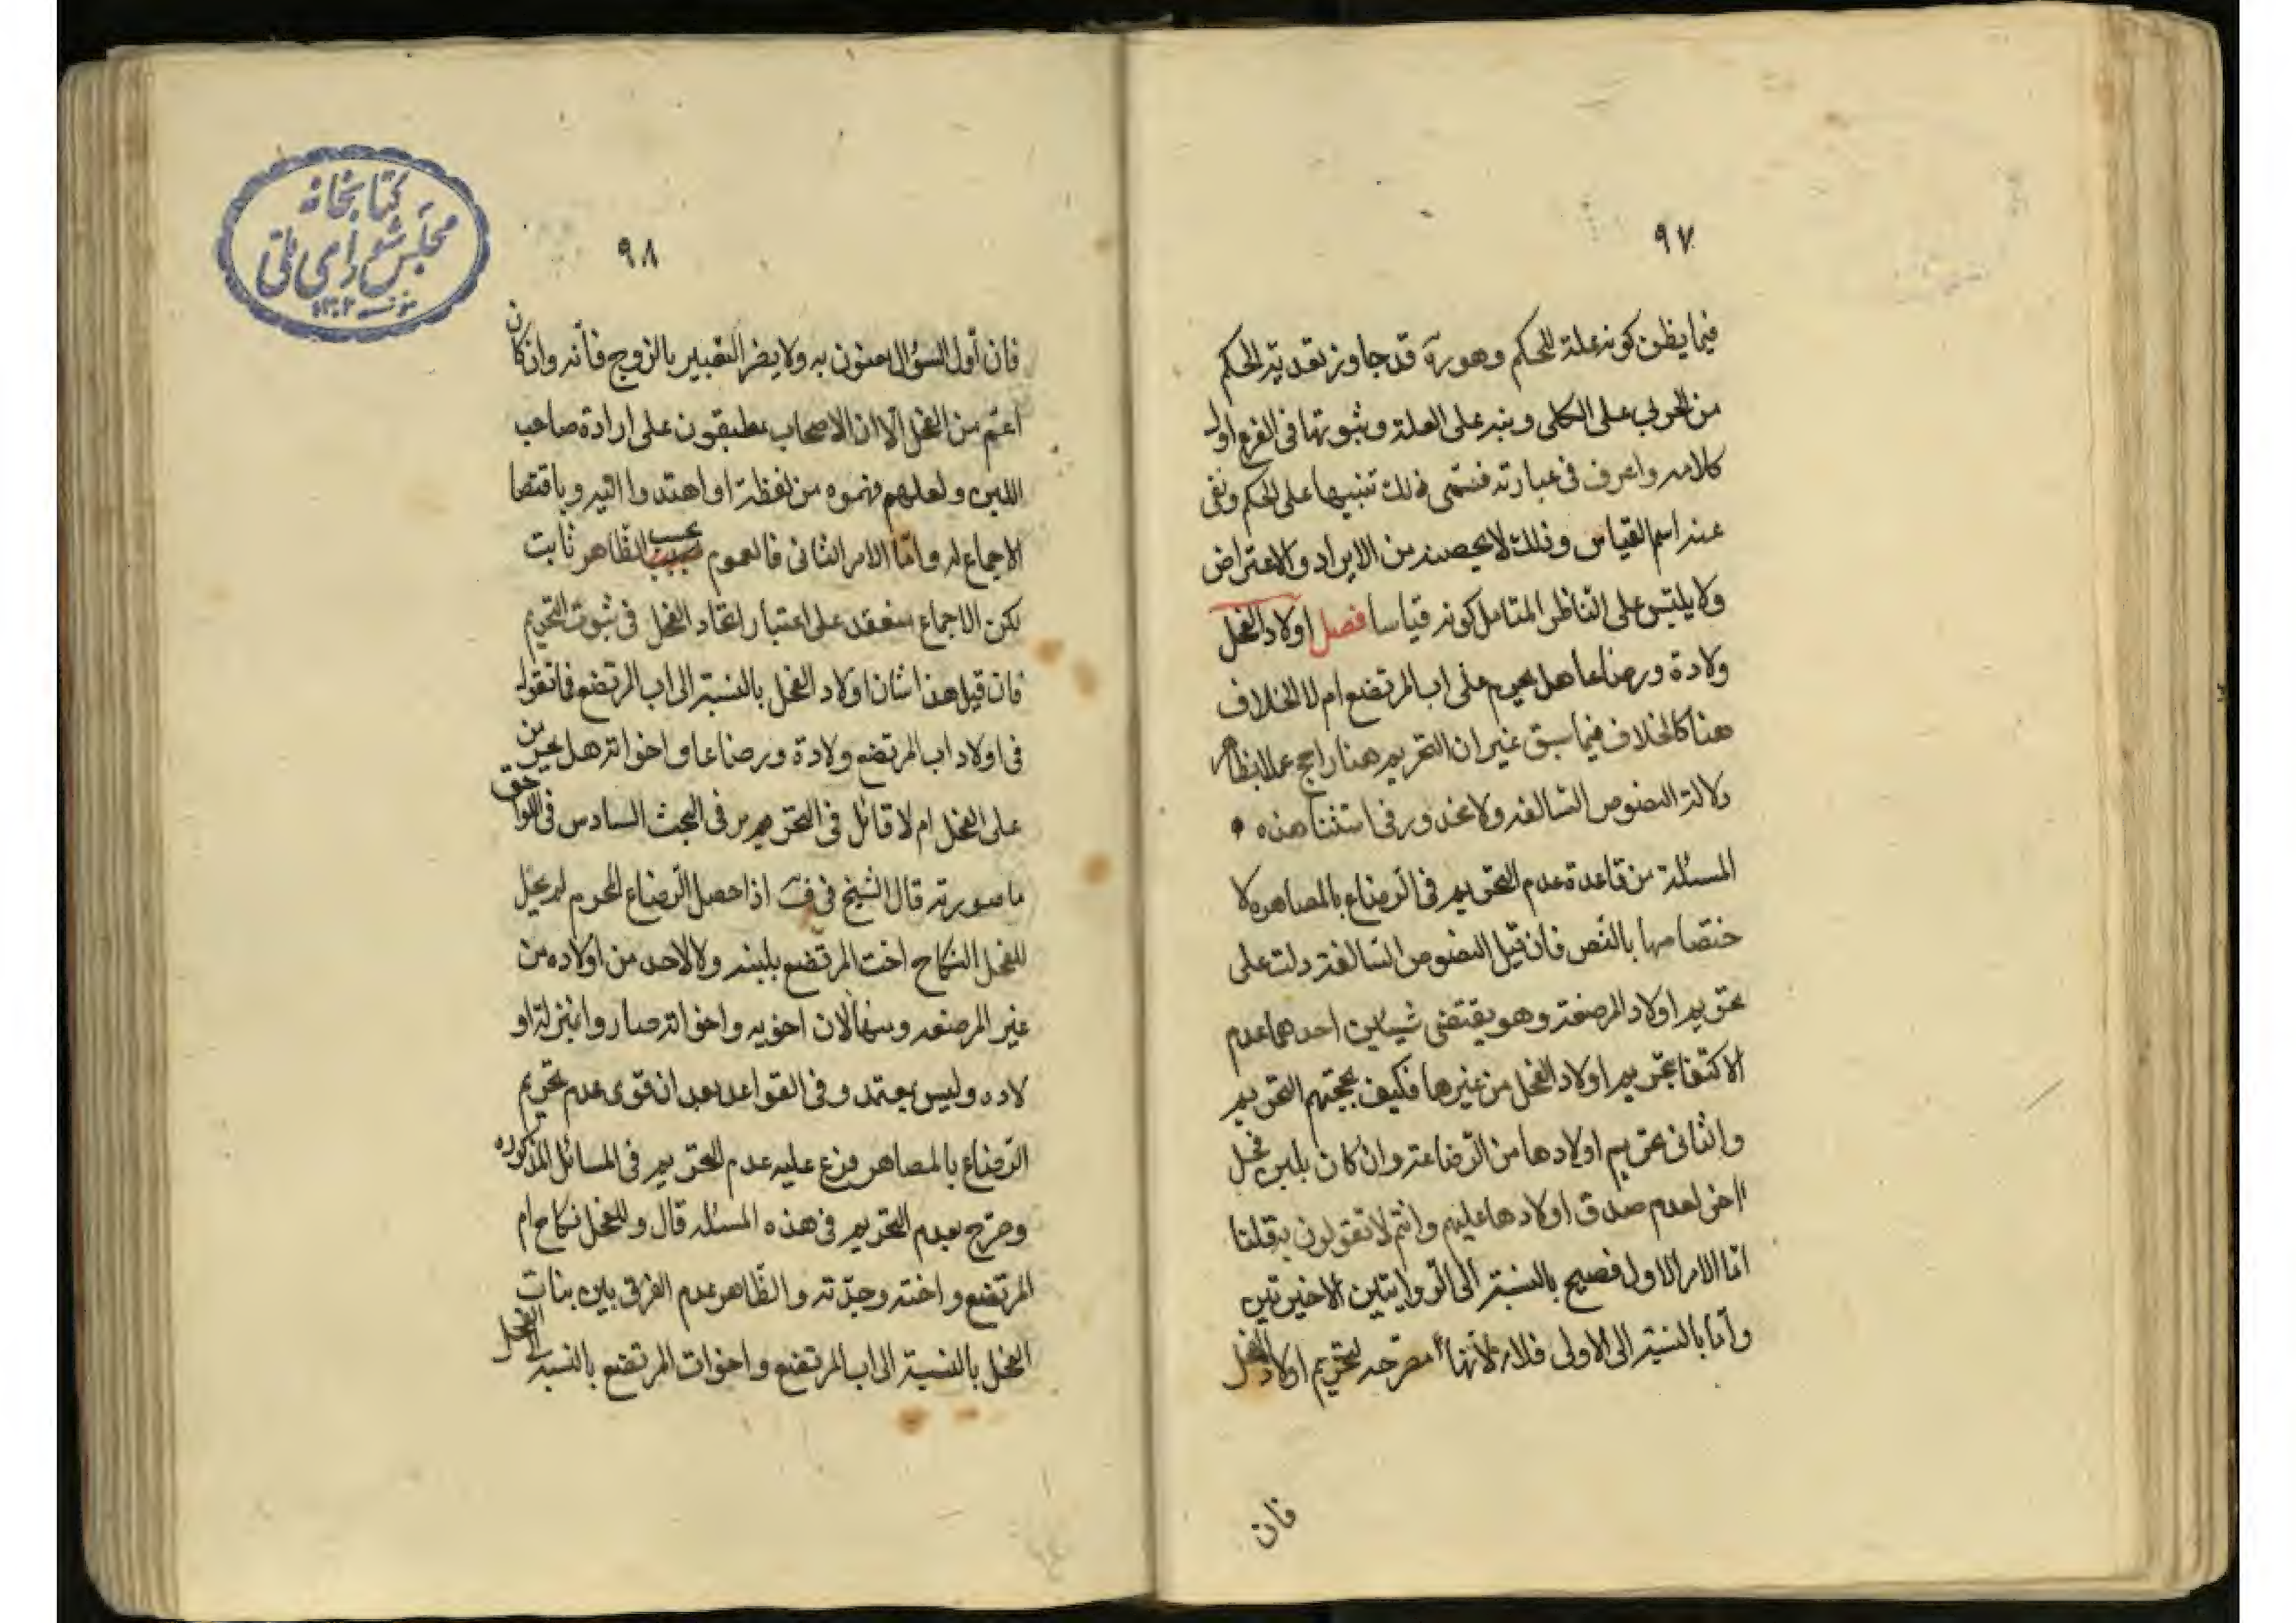 ٩٧
فيما يظن كونه علة للحكم وهو رة قد جاوز بتعدية الحكم
من الجزئى على الكلى ونبه على العلة وثبوتها فى الفرع اول
كلامه واعرف فى عبارته فتسمى ذلك تنبيها على الحكم ونفى
عنه اسم القياس وذلك لا يحصنه من الايراد والاعتراض
ولا يلتبس على الناظر المتامل كونه قياسا فصل اولاد الفحل
ولادة ورضاعا هل يحرم على اب المرتضع ام لا الخلاف
هنا كالخلاف فيما سبق غير ان التحريم هنا راجح عملا بظاهر
دلالة النصوص السالفه ولا محذور فى استثنا هذه
المسئلة من قاعدة عدم التحريم فى الرضاع بالمصاهره لا
ختصاصها بالنص فان قيل النصوص السالفة دلت على
تحريم اولاد المرضعة وهو يقتضى شيئين احدهما عدم
الاكتفا بتحريم اولاد الفحل من غيرها فكيف بحجتهم التحريم
والثانى تحريم اولادها من الرضاعة وان كان بلبن فحل
اخر لعدم صدق اولادها عليهم وانتم لا تقولون به قلنا
اما الامر الاول فصحيح بالنسبة الى الروايتين الاخيرتين
واما بالنسبة الى الاولى فلا لانها مصرحه بتحريم اولاد الفحل
فان
٩٨
فان أول السؤال معنون به ولا يضر التعبير بالزوج فأنه وان كان
اعم من الفحل الا ان الاصحاب مطبقون على ارادة صاحب
اللبن ولعلهم فهموه من لفظة او اهتدوا اليه وباقتضا
الاجماع له واما الامر الثانى فالعموم بحسب الظاهر ثابت
لكن الاجماع منعقد على اعتبار اتحاد الفحل فى ثبوت التحريم
فان قيل هذا شان اولاد الفحل بالنسبة الى اب المرتضع فما تقول
فى اولاد اب المرتضع ولادة ورضاعا واخواته هل يحرمن
على الفحل ام لا قائل فى التحرير فى البحث السادس فى اللواحق
ما صورته قال الشيخ فى ف اذا حصل الرضاع المحرم لم يحل
للفحل النكاح اخت المرتضع بلبنه ولا لاحد من اولاده من
غير المرضعه ومنها لان اخويه واخواته صاروا بمنزلة او
لاده وليس بمعتمد وفى القواعد بعد ان قوى عدم تحريم
الرضاع بالمصاهر فرع عليه عدم التحريم فى المسائل المذكوره
وصرح بعدم التحريم فى هذه المسئله قال وللفحل نكاح ام
المرتضع واخته وجدته والظاهر عدم الفرق بين بنات
الفحل بالنسبة الى اب المرتضع واخوات المرتضع بالنسبه الى الفحل
كتابخانه
مجلس شوراى ملى